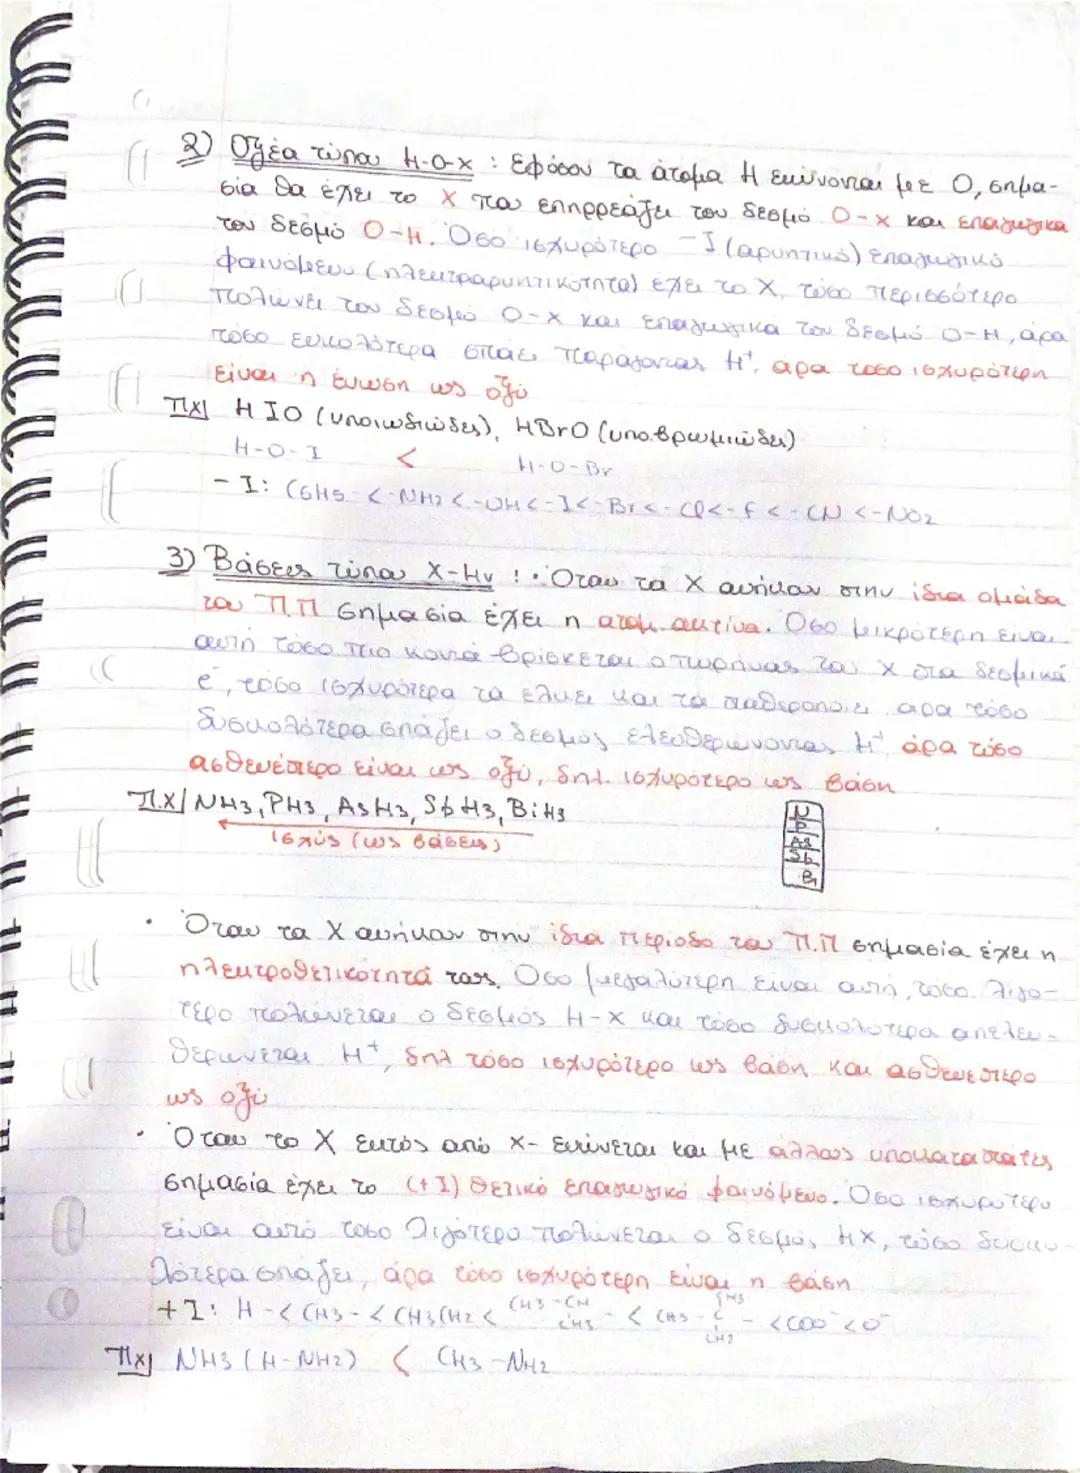 2) Οξέα τύπου H-O-X : Εφόσον τα άτομα H ενώνονται με O, σημα-
σία θα έχει το X που επηρρεάζει τον δεσμό O-X και επαγωγικα
τον δεσμό O-H. Όσο ισχυρότερο -I (αρνητικό) επαγωγικό
φαινόμενο (ηλεκτραρνητικότητα) έχει το X, τόσο περισσότερο
πολώνει τον δεσμό O-X και επαγωγικα τον δεσμό O-H, άρα
τόσο ευκολότερα σπάει παράγοντας H+, άρα τοσο ισχυρότερη
είναι η ένωση ως οξύ
Πχ| HIO (υποιωδιώδες), HBrO (υποβρωμιώδες)
H-O-I < H-O-Br
- I: C6H5- < -NH2 < -OH < -I < -Br < -Cl < -F < -CN < -NO2
3) Βάσεις τύπου X-Hν : · Όταν τα X ανήκουν στην ίδια ομάδα
του Π.Π σημασία έχει η ατομ. ακτίνα. Όσο μικρότερη είναι
αυτή τόσο πιο κοντά βρίσκεται ο πυρήνας του X στα δεσμικά
e-, τόσο ισχυρότερα τα έλκει και τα σταθεροποιεί, άρα τόσο
δυσκολότερα σπάζει ο δεσμός ελευθερώνοντας H+ άρα τόσο
ασθενέστερο είναι ως οξύ, δηλ. ισχυρότερο ως βάση
Π.χ| NH3, PH3, AsH3, SbH3, BiH3
ισχύς (ως βάσεις)
N
P
As
Sb
Bi
· Όταν τα X ανήκουν στην ίδια περίοδο του Π.Π σημασία έχει η
ηλεκτροθετικότητά τους. Όσο μεγαλύτερη είναι αυτή, τόσο λιγό-
τερο πολώνεται ο δεσμός H-X και τόσο δυσκολότερα απελευ-
θερώνεται H+, δηλ τόσο ισχυρότερο ως βάση και ασθενέστερο
ως οξύ
· Όταν το X εκτός από X- ενώνεται και με άλλους υποκαταστάτες
σημασία έχει το (+I) θετικό επαγωγικό φαινόμενο. Όσο ισχυρότερο
είναι αυτό τόσο λιγότερο πολώνεται ο δεσμός HX, τόσο δυσκο-
λότερα σπάζει, άρα τόσο ισχυρότερη είναι η βάση
+I: H- < CH3- < CH3CH2 < CH3-CH CH3 - < CH3-C CH3 CH3 - < COO- < O-
Πχ| NH3 (H-NH2) < CH3-NH2